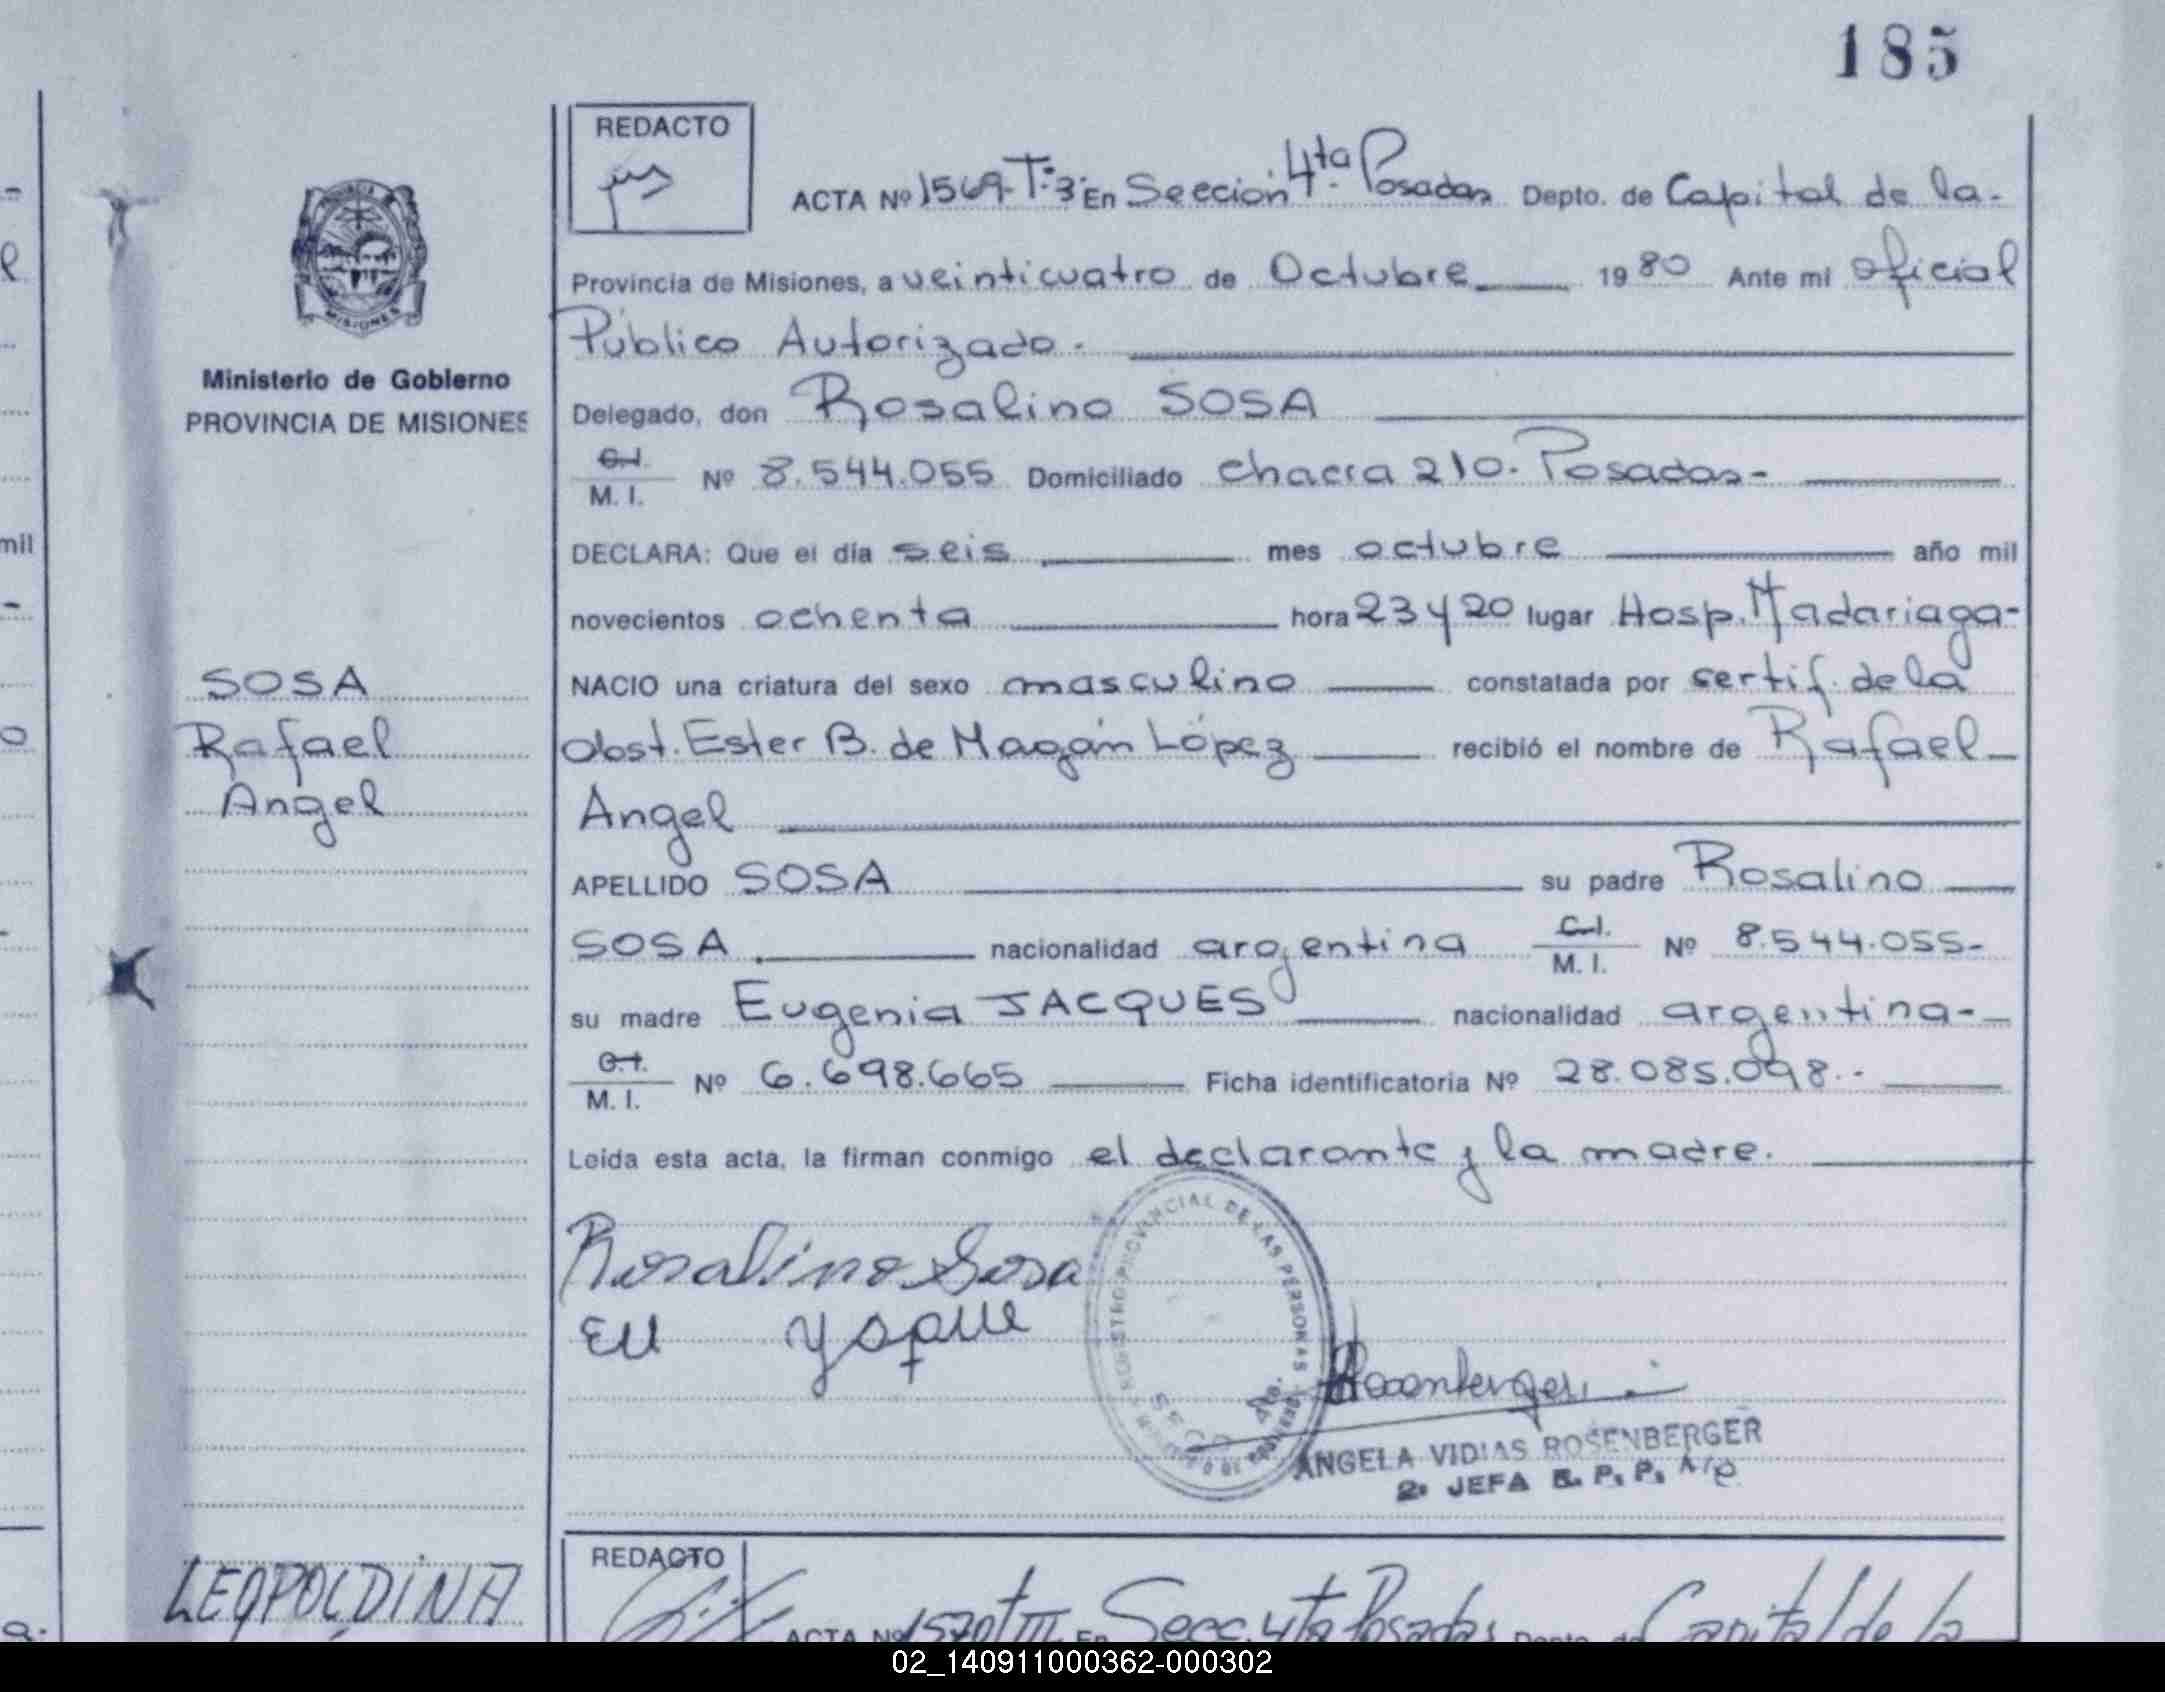 185
REDACTO
ACTA Nº 1569-T:3: En Sección 4ta. Posadas Depto. de Capital de la-
Provincia de Misiones, a veinticuatro de Octubre 1980 Ante mi oficial
Público Autorizado.
Ministerio de Gobierno
PROVINCIA DE MISIONES
Delegado, don Rosalino SOSA
C.I.
M. I. Nº 8.544.055 Domiciliado chacra 210. Posadas-
DECLARA: Que el día seis mes octubre año mil
novecientos ochenta hora 23 y 20 lugar Hosp. Madariaga-
SOSA
Rafael
Angel
NACIO una criatura del sexo masculino constatada por certif. de la
Obst. Ester B. de Magán López recibió el nombre de Rafael
Angel
APELLIDO SOSA su padre Rosalino
SOSA nacionalidad argentina C.I. M. I. Nº 8.544.055-
su madre Eugenia JACQUES nacionalidad argentina-
C.I.
M. I. Nº 6.698.665 Ficha identificatoria Nº 28.085.098.-
Leída esta acta, la firman conmigo el declarante y la madre.
Rosalino Sosa
REGISTRO PROVINCIAL DE LAS PERSONAS
Rosenberger
ANGELA VIDIAS ROSENBERGER
2: JEFA R. P. P.
LEOPOLDINA
REDACTO
ACTA Nº 1570 t III En Secc. 4ta Posadas Depto. de Capital de la
02_140911000362-000302